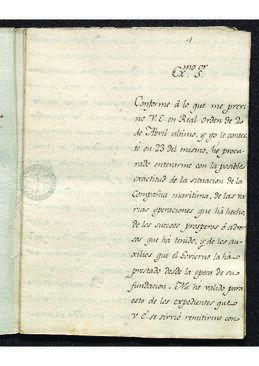 Exmo. Sr.
Conforme á lo que me previ-
no V.E. en Real orden de 20
de Abril ultimo, y yo le contes-
té en 23 del mismo, he procu-
rado enterarme con la posible
exactitud de la situacion de la
Compañia maritima, de las va-
rias operaciones que há hecho,
de los sucesos prosperos ó adver-
sos que há tenido, y de los au-
xilios que el Govierno la ha
prestado desde la epoca de su
fundacion. Me he valido para
esto de los expedientes que
V.E. se sirvió remitirme con